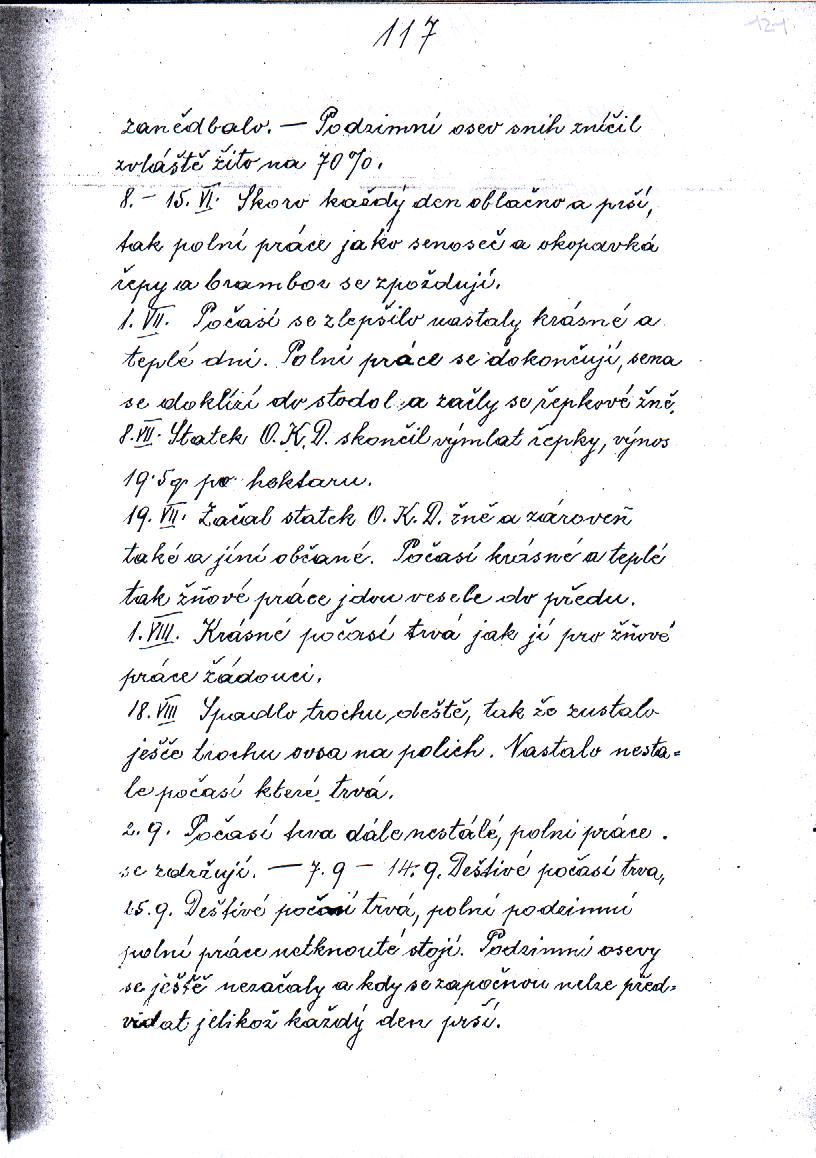 117
121
zanědbalo. — Podzimní osev snih zničil
zvláště žito na 70%.
8. – 15. VI. Skoro každý den oblačno a prší,
tak polní práce jako senoseč a okopávká
řepy a brambor se zpoždují.
1. VII. Počasí se zlepšilo nastaly krásné a
teplé dni. Polní práce se dokončují, sena
se doklízí do stodol a začly se řepkové žně.
8. VII. Statek O.K.D. skončil výmlat řepky, výnos
19·5q po hektaru.
19. VII. Začal statek O.K.D. žně a zároveň
také a jíní občané. Počasí krásné a teplé
tak žňové práce jdou vesele do předu.
1. VIII. Krásné počasí trvá jak jí pro žňové
práce žádoucí.
18. VIII Spadlo trochu deště, tak že zustalo
ješče trochu ovsa na polich. Nastalo nesta=
le počasí které trvá.
2. 9. Počasí trva dále nestálé, polni práce.
se zdržují. — 7. 9 – 14. 9. Deštivé počasí trva,
15. 9. Deštivé počasí trvá, polní podzimní
polní práce netknouté stojí. Podzimní osevy
se ještě nezačaly a kdy se započnou nelze před=
vidat jelikož každý den prší.